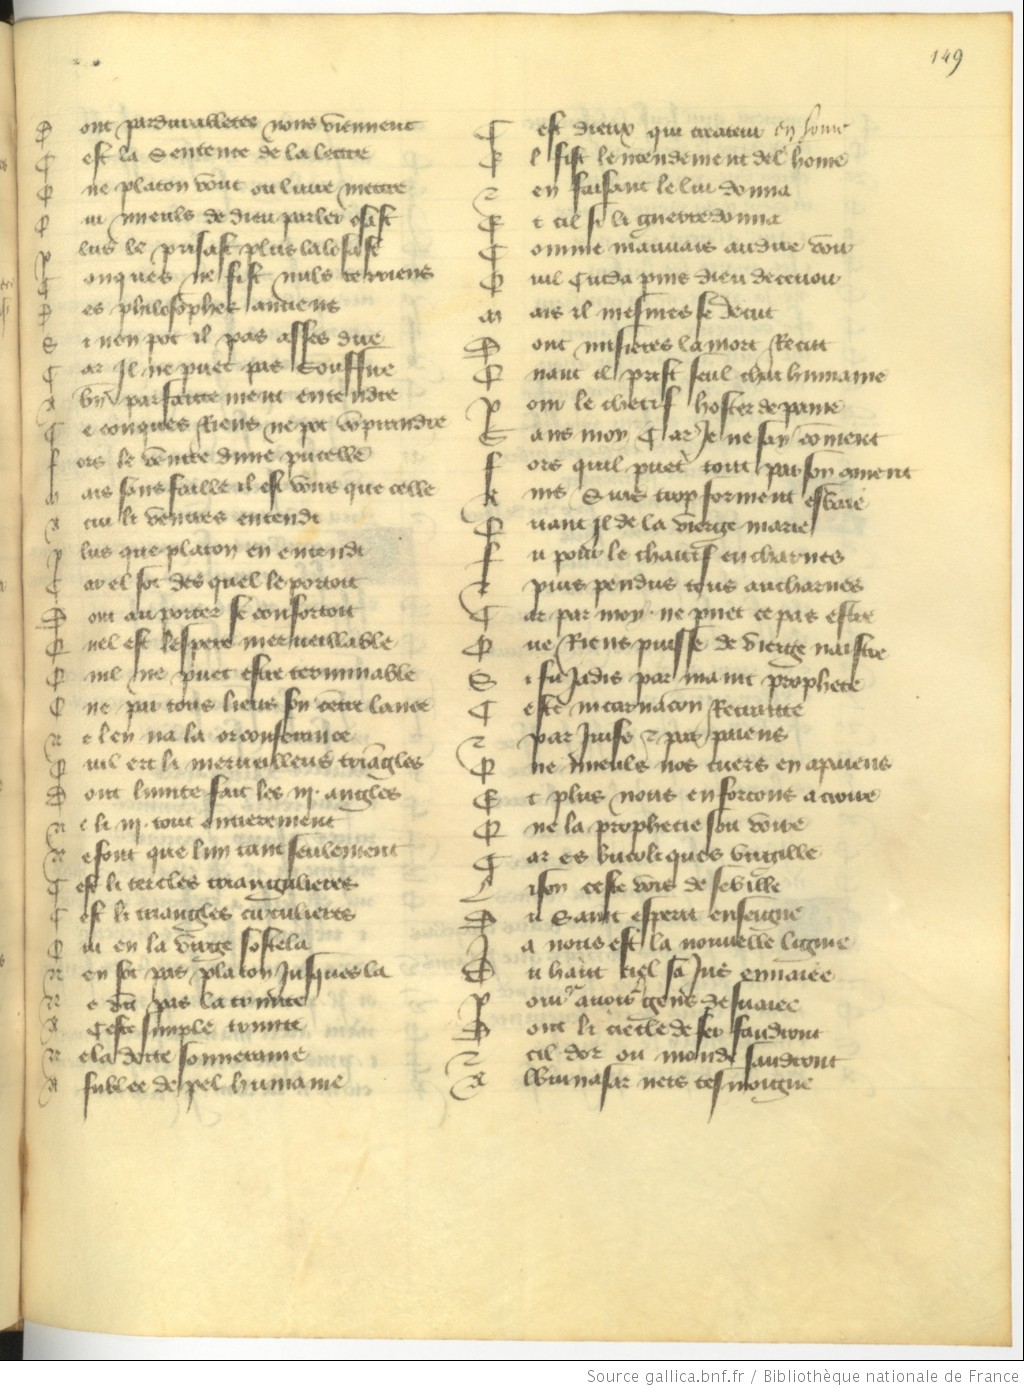 149
D ont pardurabletes nons viennent
C est la Sentente de la lettre
Q ne platon vout ou livre mettre
C ui mieuls de dieu parler osast
P lus le prisast plus lalosast
C onques ne fist nuls terriens
D es philosophes anciens
S i nen pot il pas asses dire
C ar Il ne puet pas Souffire
A bn parfaitement entendre
C e conques Riens ne pot conprendre
f ors le ventre dune pucelle
M ais sans faille il est vrais que celle
A cui li ventres entendi
P lus que platon en entendi
C ar el sot des quel le portoit
D ont au porter se confortoit
Q uel est lespere merveillable
Q uil ne puet estre terminable
Q ue par tous lieus son centre lance
N e lieu na la circonference
Q uil ert li merveilleus triangles
D ont lunite fait les iii angles
N e li iii tout entierement
N e font que lun tant seulement
C est li cercles triangulieres
C est li triangles circulieres
Q ui en la vierge sostela
N en sot pas platon Jusques la
N e vit pas la trinite
A Ceste simple trinite
N e la deite souveraine
A fublee de pel humaine
C est dieux qui createur en some
E l fist lentendement del home
Z en faisant le lui donna
E t cil si li guerredonna
C omme mauvais au dire voir
Q uil Cuida puis dieu decevoir
M ais il mesmes se decut
D ont nusieres la mort Recut
Q uant il prist seul char humaine
P our le chetif hoster de paine
S ans moy Car Je ne say coment
f ors quil puet tout par son coment
A ins Suis trop forment esbaie
Q uant Il de la vierge marie
f u pour le chaitif encharnes
Z puis pendus tous aucharnes
C ar par moy ne puet ce pas estre
Q ue Riens puisse de vierge naistre
S i fu Jadis par maint prophete
C este incarnacon Retraitte
Z par Juifs z par paiens
Q ue mieuls nos cuers en apaiens
E t plus nous enforcons a croire
Q ue la prophecie soit voire
C ar es bucoliques virgille
L ison ceste vois de sebille
D u Saint esperit enseigne
J a nous est la nouvelle ligne
D u haut ciel sa Jus envaiee
P our avoir gens desvaiee
D ont li siecle de fer faudront
Z cil dor ou monde saudront
A lbumasar neis tesmoigne
Source gallica.bnf.fr / Bibliothèque nationale de France